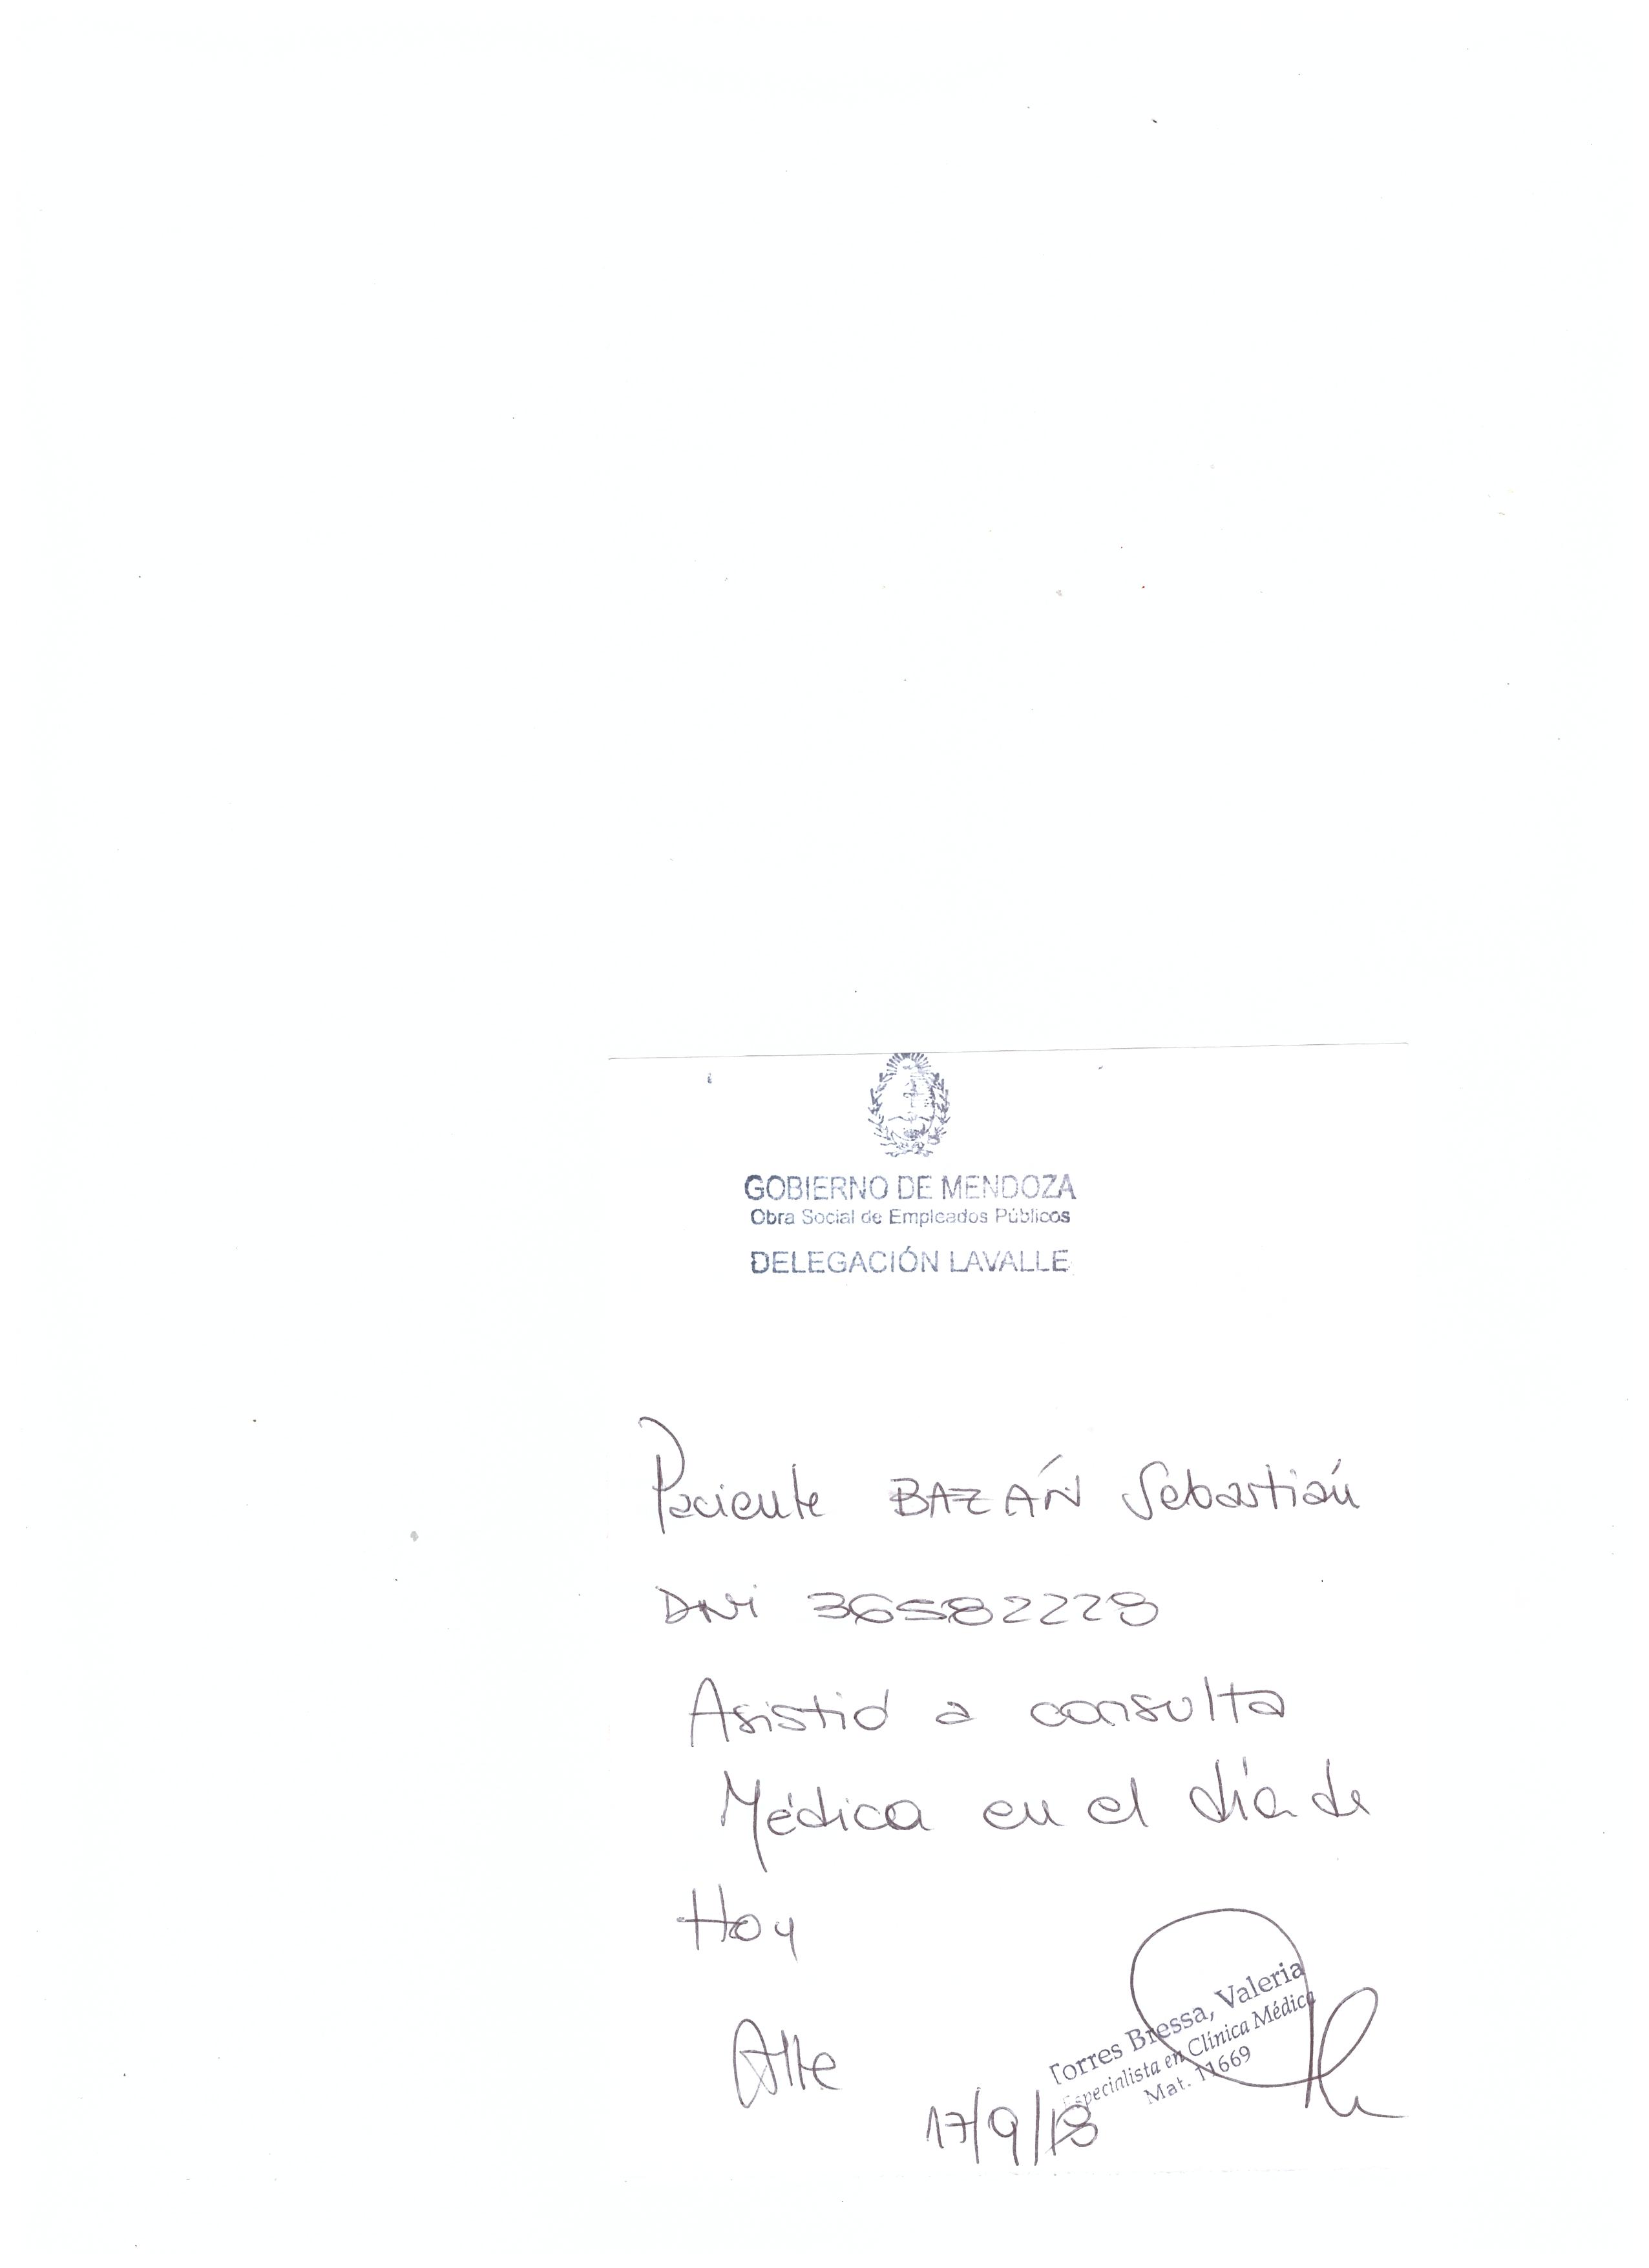 GOBIERNO DE MENDOZA
Obra Social de Empleados Públicos
DELEGACIÓN LAVALLE
Paciente BAZÁN Sebastián
DNi 36582228
Asistió a consulta
Médica en el día de
Hoy
Atte
Torres Bressa, Valeria
Especialista en Clínica Médica
Mat. 11669
17/9/18